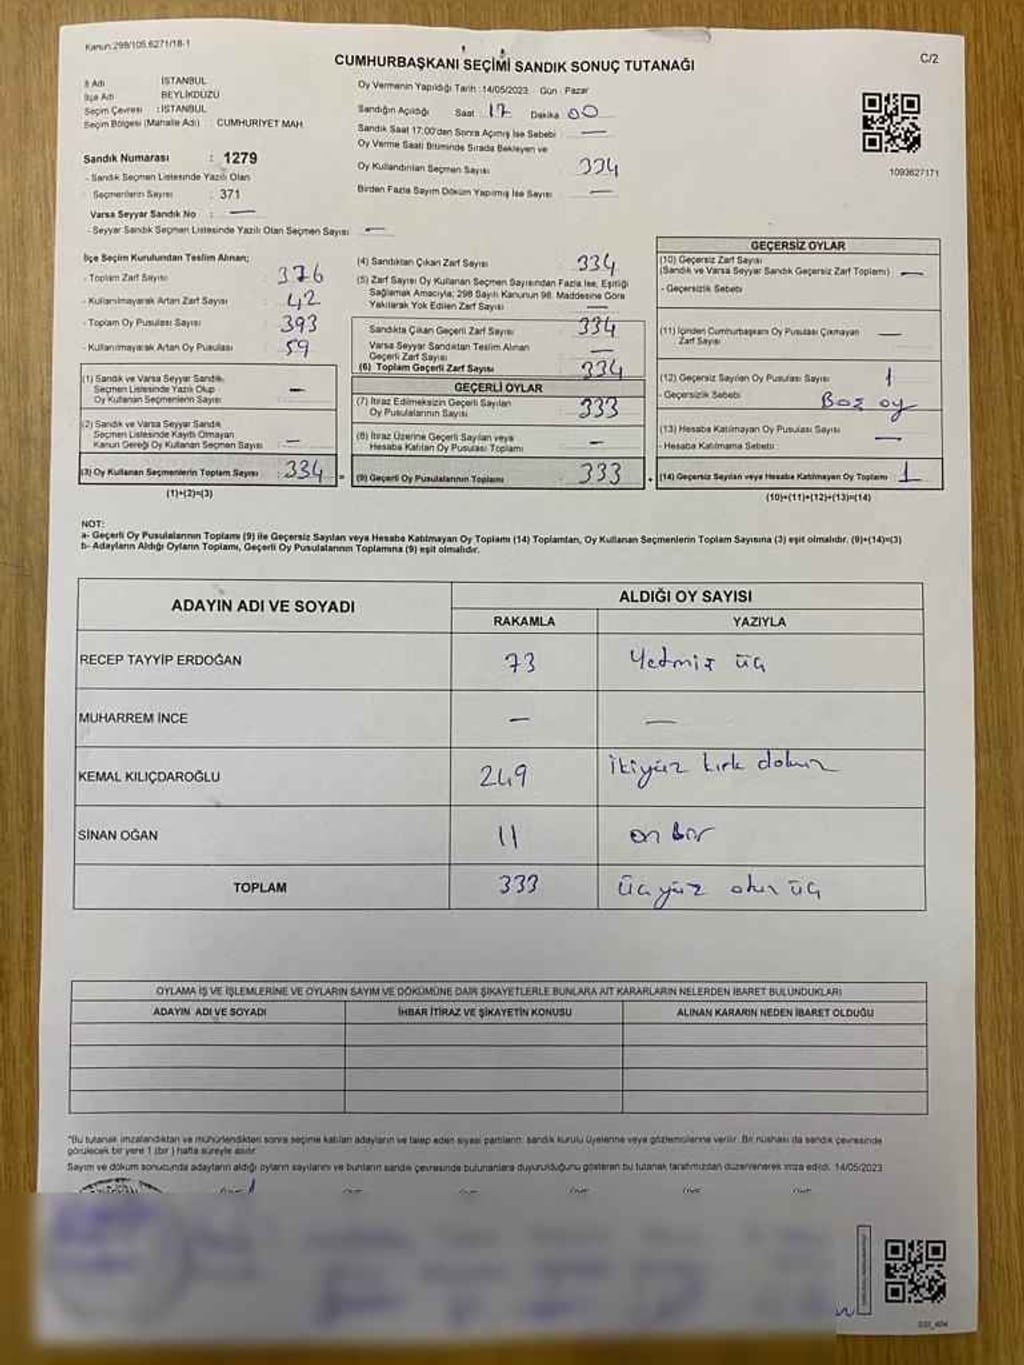 Kanun:298/105.6271/18-1
CUMHURBAŞKANI SEÇİMİ SANDIK SONUÇ TUTANAĞI
C/2
İl Adı : İSTANBUL
İlçe Adı : BEYLİKDÜZÜ
Seçim Çevresi : İSTANBUL
Seçim Bölgesi (Mahalle Adı) : CUMHURİYET MAH.
Oy Vermenin Yapıldığı Tarih :14/05/2023 Gün : Pazar
Sandığın Açıldığı Saat 17 Dakika 00
Sandık Saat 17:00'den Sonra Açılmış İse Sebebi : —
Oy Verme Saati Bitiminde Sırada Bekleyen ve
Oy Kullandırılan Seçmen Sayısı 334
Birden Fazla Sayım Döküm Yapılmış İse Sayısı —
1093627171
Sandık Numarası : 1279
- Sandık Seçmen Listesinde Yazılı Olan
Seçmenlerin Sayısı : 371
Varsa Seyyar Sandık No : —
- Seyyar Sandık Seçmen Listesinde Yazılı Olan Seçmen Sayısı : —
İlçe Seçim Kurulundan Teslim Alınan;
- Toplam Zarf Sayısı : 376
- Kullanılmayarak Artan Zarf Sayısı : 42
- Toplam Oy Pusulası Sayısı : 393
- Kullanılmayarak Artan Oy Pusulası : 59
(1) Sandık ve Varsa Seyyar Sandık
Seçmen Listesinde Yazılı Olup
Oy Kullanan Seçmenlerin Sayısı : —
(2) Sandık ve Varsa Seyyar Sandık
Seçmen Listesinde Kayıtlı Olmayan
Kanun Gereği Oy Kullanan Seçmen Sayısı : —
(3) Oy Kullanan Seçmenlerin Toplam Sayısı : 334
(1)+(2)=(3)
(4) Sandıktan Çıkan Zarf Sayısı 334
(5) Zarf Sayısı Oy Kullanan Seçmen Sayısından Fazla İse, Eşitliği
Sağlamak Amacıyla; 298 Sayılı Kanunun 98. Maddesine Göre
Yakılarak Yok Edilen Zarf Sayısı —
Sandıkta Çıkan Geçerli Zarf Sayısı 334
Varsa Seyyar Sandıktan Teslim Alınan
Geçerli Zarf Sayısı —
(6) Toplam Geçerli Zarf Sayısı 334
GEÇERLİ OYLAR
(7) İtiraz Edilmeksizin Geçerli Sayılan
Oy Pusulalarının Sayısı 333
(8) İtiraz Üzerine Geçerli Sayılan veya
Hesaba Katılan Oy Pusulası Toplamı —
= (9) Geçerli Oy Pusulalarının Toplamı 333
GEÇERSİZ OYLAR
(10) Geçersiz Zarf Sayısı
(Sandık ve Varsa Seyyar Sandık Geçersiz Zarf Toplamı) —
- Geçersizlik Sebebi
(11) İçinden Cumhurbaşkanı Oy Pusulası Çıkmayan
Zarf Sayısı —
(12) Geçersiz Sayılan Oy Pusulası Sayısı 1
- Geçersizlik Sebebi Boş oy
(13) Hesaba Katılmayan Oy Pusulası Sayısı —
- Hesaba Katılmama Sebebi :
+ (14) Geçersiz Sayılan veya Hesaba Katılmayan Oy Toplamı 1
(10)+(11)+(12)+(13)=(14)
NOT:
a- Geçerli Oy Pusulalarının Toplamı (9) ile Geçersiz Sayılan veya Hesaba Katılmayan Oy Toplamı (14) Toplamları, Oy Kullanan Seçmenlerin Toplam Sayısına (3) eşit olmalıdır. (9)+(14)=(3)
b- Adayların Aldığı Oyların Toplamı, Geçerli Oy Pusulalarının Toplamına (9) eşit olmalıdır.
ADAYIN ADI VE SOYADI ALDIĞI OY SAYISI
RAKAMLA YAZIYLA
RECEP TAYYİP ERDOĞAN 73 Yetmiş üç
MUHARREM İNCE — —
KEMAL KILIÇDAROĞLU 249 ikiyüz kırk dokuz
SİNAN OĞAN 11 on bir
TOPLAM 333 üçyüz otuz üç
OYLAMA İŞ VE İŞLEMLERİNE VE OYLARIN SAYIM VE DÖKÜMÜNE DAİR ŞİKAYETLERLE BUNLARA AİT KARARLARIN NELERDEN İBARET BULUNDUKLARI
ADAYIN ADI VE SOYADI İHBAR İTİRAZ VE ŞİKAYETİN KONUSU ALINAN KARARIN NEDEN İBARET OLDUĞU
"Bu tutanak imzalandıktan ve mühürlendikten sonra seçime katılan adayların ve talep eden siyasi partilerin sandık kurulu üyelerine veya gözlemcilerine verilir. Bir nüshası da sandık çevresinde
görülecek bir yere 1 (bir) hafta süreyle asılır.
Sayım ve döküm sonucunda adayların aldığı oyların sayılarını ve bunların sandık çevresinde bulunanlara duyurulduğunu gösteren bu tutanak tarafımızdan düzenlenerek imza edildi. 14/05/2023